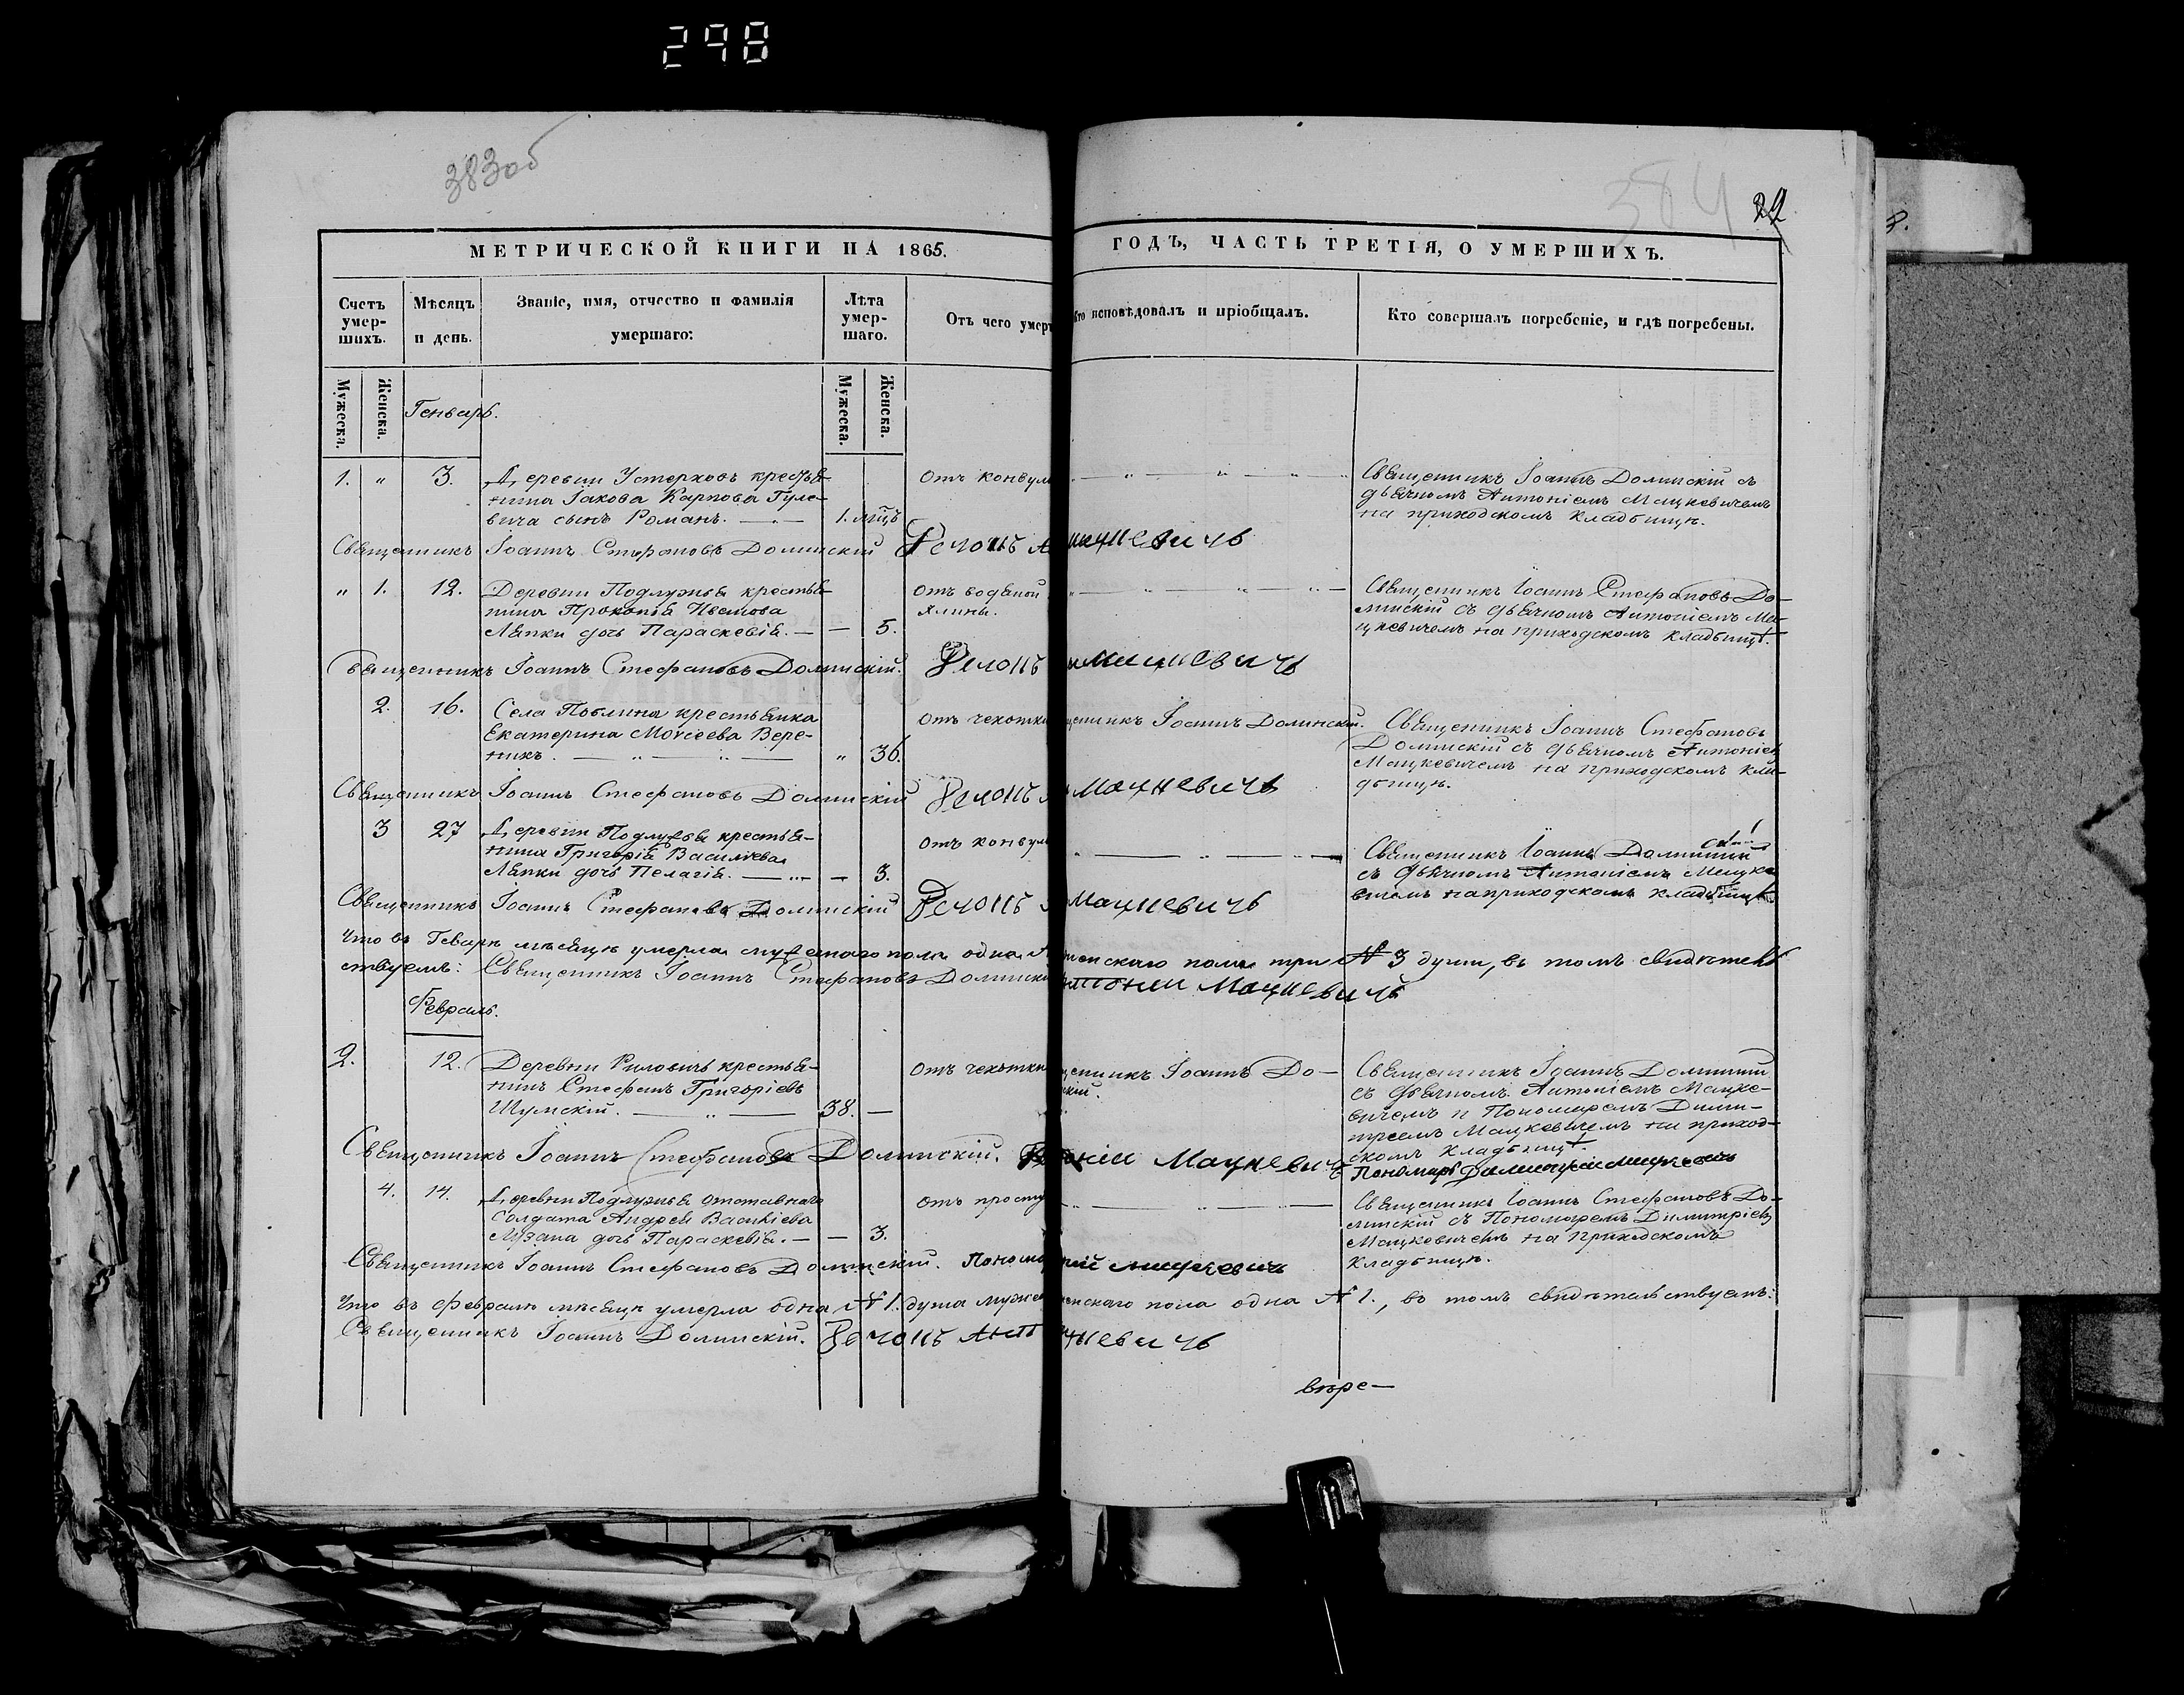 298
383об
384
22
МЕТРИЧЕСКОЙ КНИГИ НА 1865.
ГОДЪ, ЧАСТЬ ТРЕТІЯ, О УМЕРШИХЪ.
Счетъ умер-шихъ.
Мѣсяцъ и день.
Званіе, имя, отчество и фамилія умершаго:
Лѣта умер-шаго.
Отъ чего умер
Кто исповѣдовалъ и пріобщалъ.
Кто совершалъ погребеніе, и гдѣ погребены.
Мужеска.
Женска.
Мужеска.
Женска.
Генварь.
1. " 3. Деревни Устерховъ крестья-
нина Іакова Карпова Гуле-
вича сынъ Романъ. 1. мцъ
Отъ конвул
Священникъ Іоаннъ Долинскій съ
дьячкомъ Антоніемъ Мацкевичемъ
на приходскомъ кладбищѣ.
Священникъ Іоаннъ Стефановъ Долинскій Дечокъ А Мацкевичь
" 1. 12. Деревни Подлужья крестья-
нина Прокопія Иванова
Ляпки дочь Параскевія. — — 5.
Отъ водяной
хлины.
Священникъ Іоаннъ Стефановъ До-
линскій съ дьячкомъ Антоніемъ Ма-
цкевичемъ на приходскомъ кладбищѣ.
Священникъ Іоаннъ Стефановъ Долинскій. Дечокъ Мацкевичь
2. 16. Села Поблина крестьянка
Екатерина Моисеева Вере-
никъ. " 36.
Отъ чехотки
щенникъ Іоаннъ Долинскій.
Священникъ Іоаннъ Стефановъ
Долинскій съ дьячкомъ Антоніем
Мацкевичемъ на приходскомъ кла-
дбищѣ.
Священникъ Іоаннъ Стефановъ Долинскій Дечокъ Мацкевичь
3 27 Деревни Подлужья крестья-
нина Григорія Василіева
Ляпки дочь Пелагія. — 3.
Отъ конвул
Священникъ Іоаннъ Долинскій
съ дьячкомъ Антоніемъ Мацке
вичемъ на приходскомъ кладбищѣ.
Священникъ Іоаннъ Стефановъ Долинскій Дечокъ Мацкевичь
Что въ Генварѣ мѣсяцѣ умерла мужескаго пола одна женскаго пола три № 3 души, въ томъ свидѣтель
ствуемъ: Священникъ Іоаннъ Стефановъ Долински Антоній Мацкевичь
Февраль.
2. 12. Деревни Риловичъ крестья-
нинъ Стефанъ Григоріевъ
Шумскій. 38. —
Отъ чехотки
щенникъ Іоаннъ До-
скій.
Священникъ Іоаннъ Долинскій
съ дьячкомъ Антоніемъ Мацке-
вичемъ и Пономаремъ Дими-
тріемъ Мацкевичемъ на приход-
скомъ кладбищѣ.
Священникъ Іоаннъ Стефановъ Долинскій. Мацкевичь
Пономарь Димитрій Мицкевичь
4. 14. Деревни Подлужья отставнаго
солдата Андрея Василіева
Лузана дочь Параскевія. — — 3.
Отъ просту
Священникъ Іоаннъ Стефановъ До-
линскій съ Пономаремъ Димитріем
Мацкевичемъ на приходскомъ
кладбищѣ.
Священникъ Іоаннъ Стефановъ Долинскій. Понома рій Мицкевичь
Что въ Февралѣ мѣсяцѣ умерла одна № 1. душа муже женскаго пола одна № 1., въ томъ свидѣтельствуемъ:
Священникъ Іоаннъ Долинскій. Дечокъ Ант цкевичь